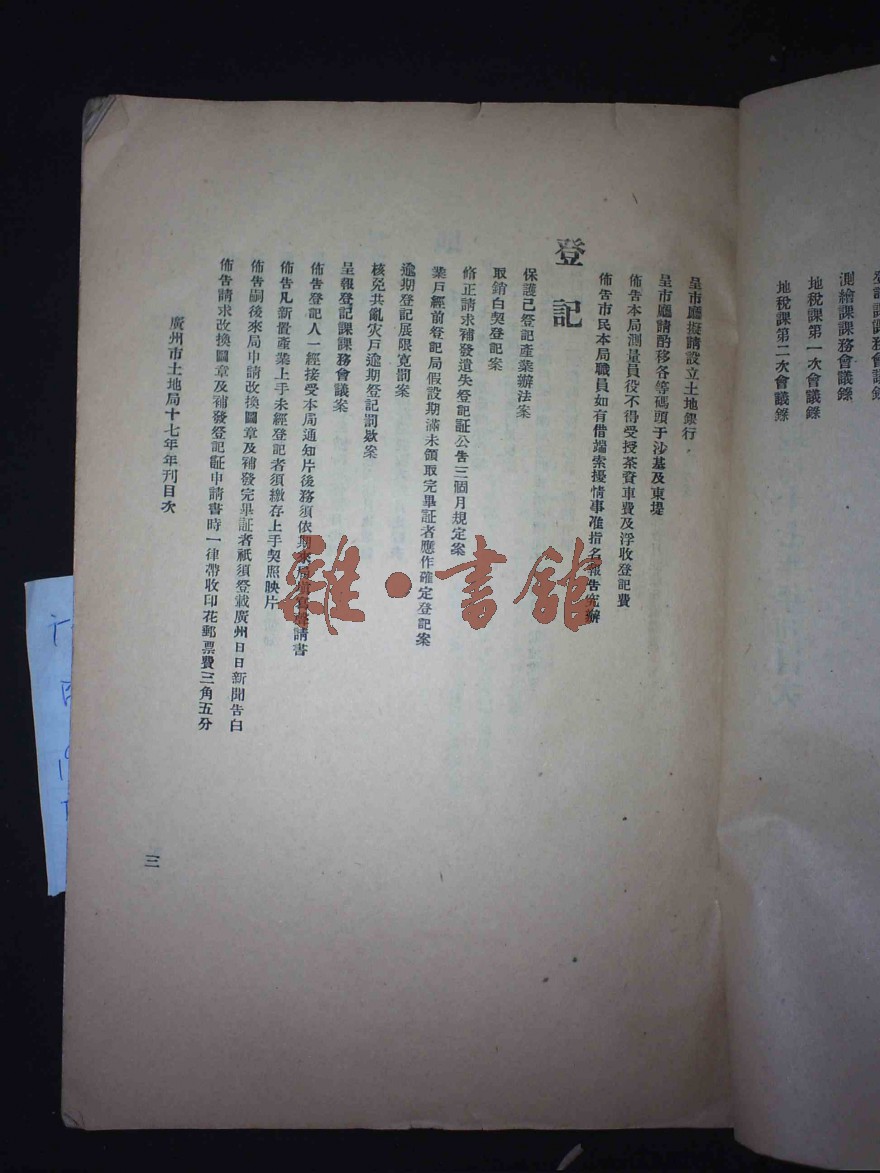 登記課課務會議錄
測繪課課務會議錄
地稅課第一次會議錄
地稅課第二次會議錄
呈市廳擬請設立土地銀行
呈市廳請酌移各等碼頭于沙基及東堤
佈告本局測量員役不得受授茶資車費及浮收登記費
佈告市民本局職員如有借端索擾情事准指名報告究辦
登記
保護已登記產業辦法案
取銷白契登記案
修正請求補發遺失登記証公告三個月規定案
業戶經前登記局假設期滿未領取完畢証者應作確定登記案
逾期登記展限寬罰案
核免共亂灾戶逾期登記罰欵案
呈報登記課課務會議案
佈告登記人一經接受本局通知片後務須依期來局填寫聲請書
佈告凡新置產業上手未經登記者須繳存上手契照映片
佈告嗣後來局申請改換圖章及補發完畢証者祇須登載廣州日日新聞告白
佈告請求改換圖章及補發登記証申請書時一律帶收印花郵票費三角五分
廣州市土地局十七年年刊目次
三
雜·書館